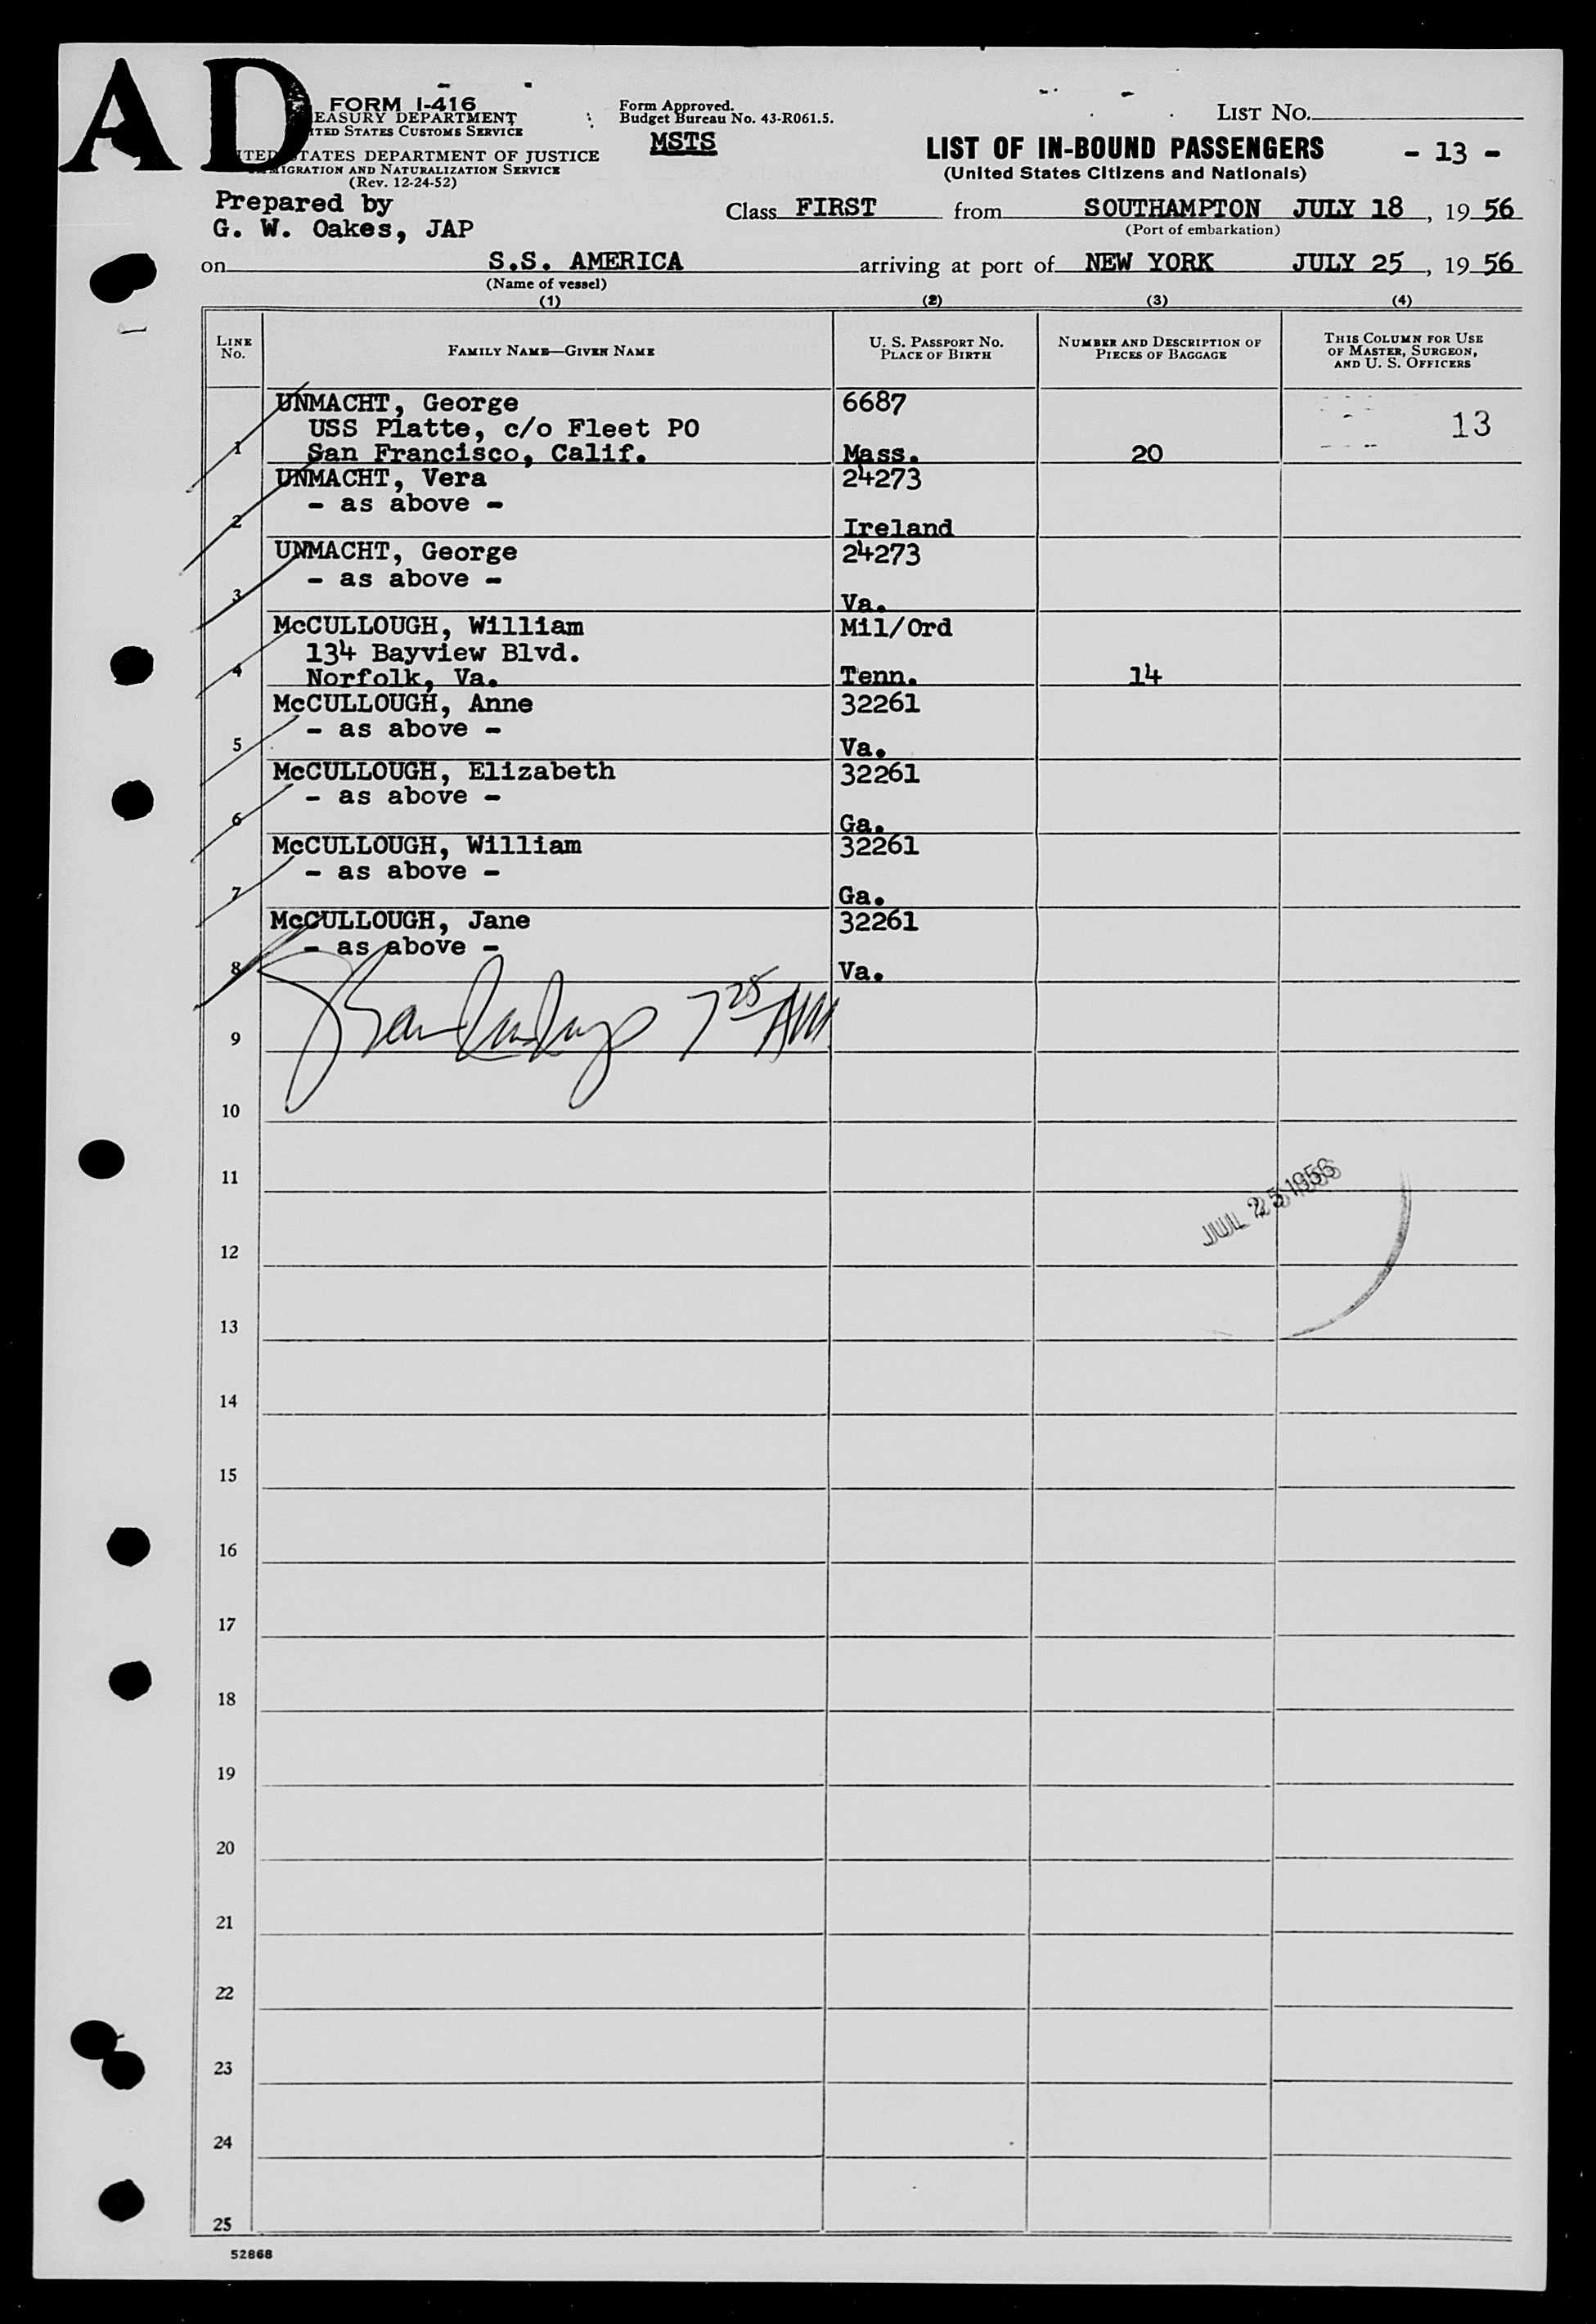 AD
FORM I-416
EASURY DEPARTMENT
ITED STATES CUSTOMS SERVICE
ITED STATES DEPARTMENT OF JUSTICE
MIGRATION AND NATURALIZATION SERVICE
(Rev. 12-24-52)
Form Approved.
Budget Bureau No. 43-R061.5.
MSTS
LIST NO.
LIST OF IN-BOUND PASSENGERS - 13 -
(United States Citizens and Nationals)
Prepared by
G. W. Oakes, JAP
Class FIRST from SOUTHAMPTON JULY 18, 19 56
(Port of embarkation)
on S.S. AMERICA arriving at port of NEW YORK JULY 25, 19 56
(Name of vessel)
(1) (2) (3) (4)
LINE No. FAMILY NAME—GIVEN NAME U. S. PASSPORT NO. PLACE OF BIRTH NUMBER AND DESCRIPTION OF PIECES OF BAGGAGE THIS COLUMN FOR USE OF MASTER, SURGEON, AND U. S. OFFICERS
UNMACHT, George 6687
USS Platte, c/o Fleet PO 13
1 San Francisco, Calif. Mass. 20
UNMACHT, Vera 24273
- as above -
2 Ireland
UNMACHT, George 24273
- as above -
3 Va.
McCULLOUGH, William Mil/Ord
134 Bayview Blvd.
4 Norfolk, Va. Tenn. 14
McCULLOUGH, Anne 32261
- as above -
5 Va.
McCULLOUGH, Elizabeth 32261
- as above -
6 Ga.
McCULLOUGH, William 32261
- as above -
7 Ga.
McCULLOUGH, Jane 32261
- as above -
8 Va.
7 25 AM
9
10
11
JUL 25 1956
12
13
14
15
16
17
18
19
20
21
22
23
24
25
52868